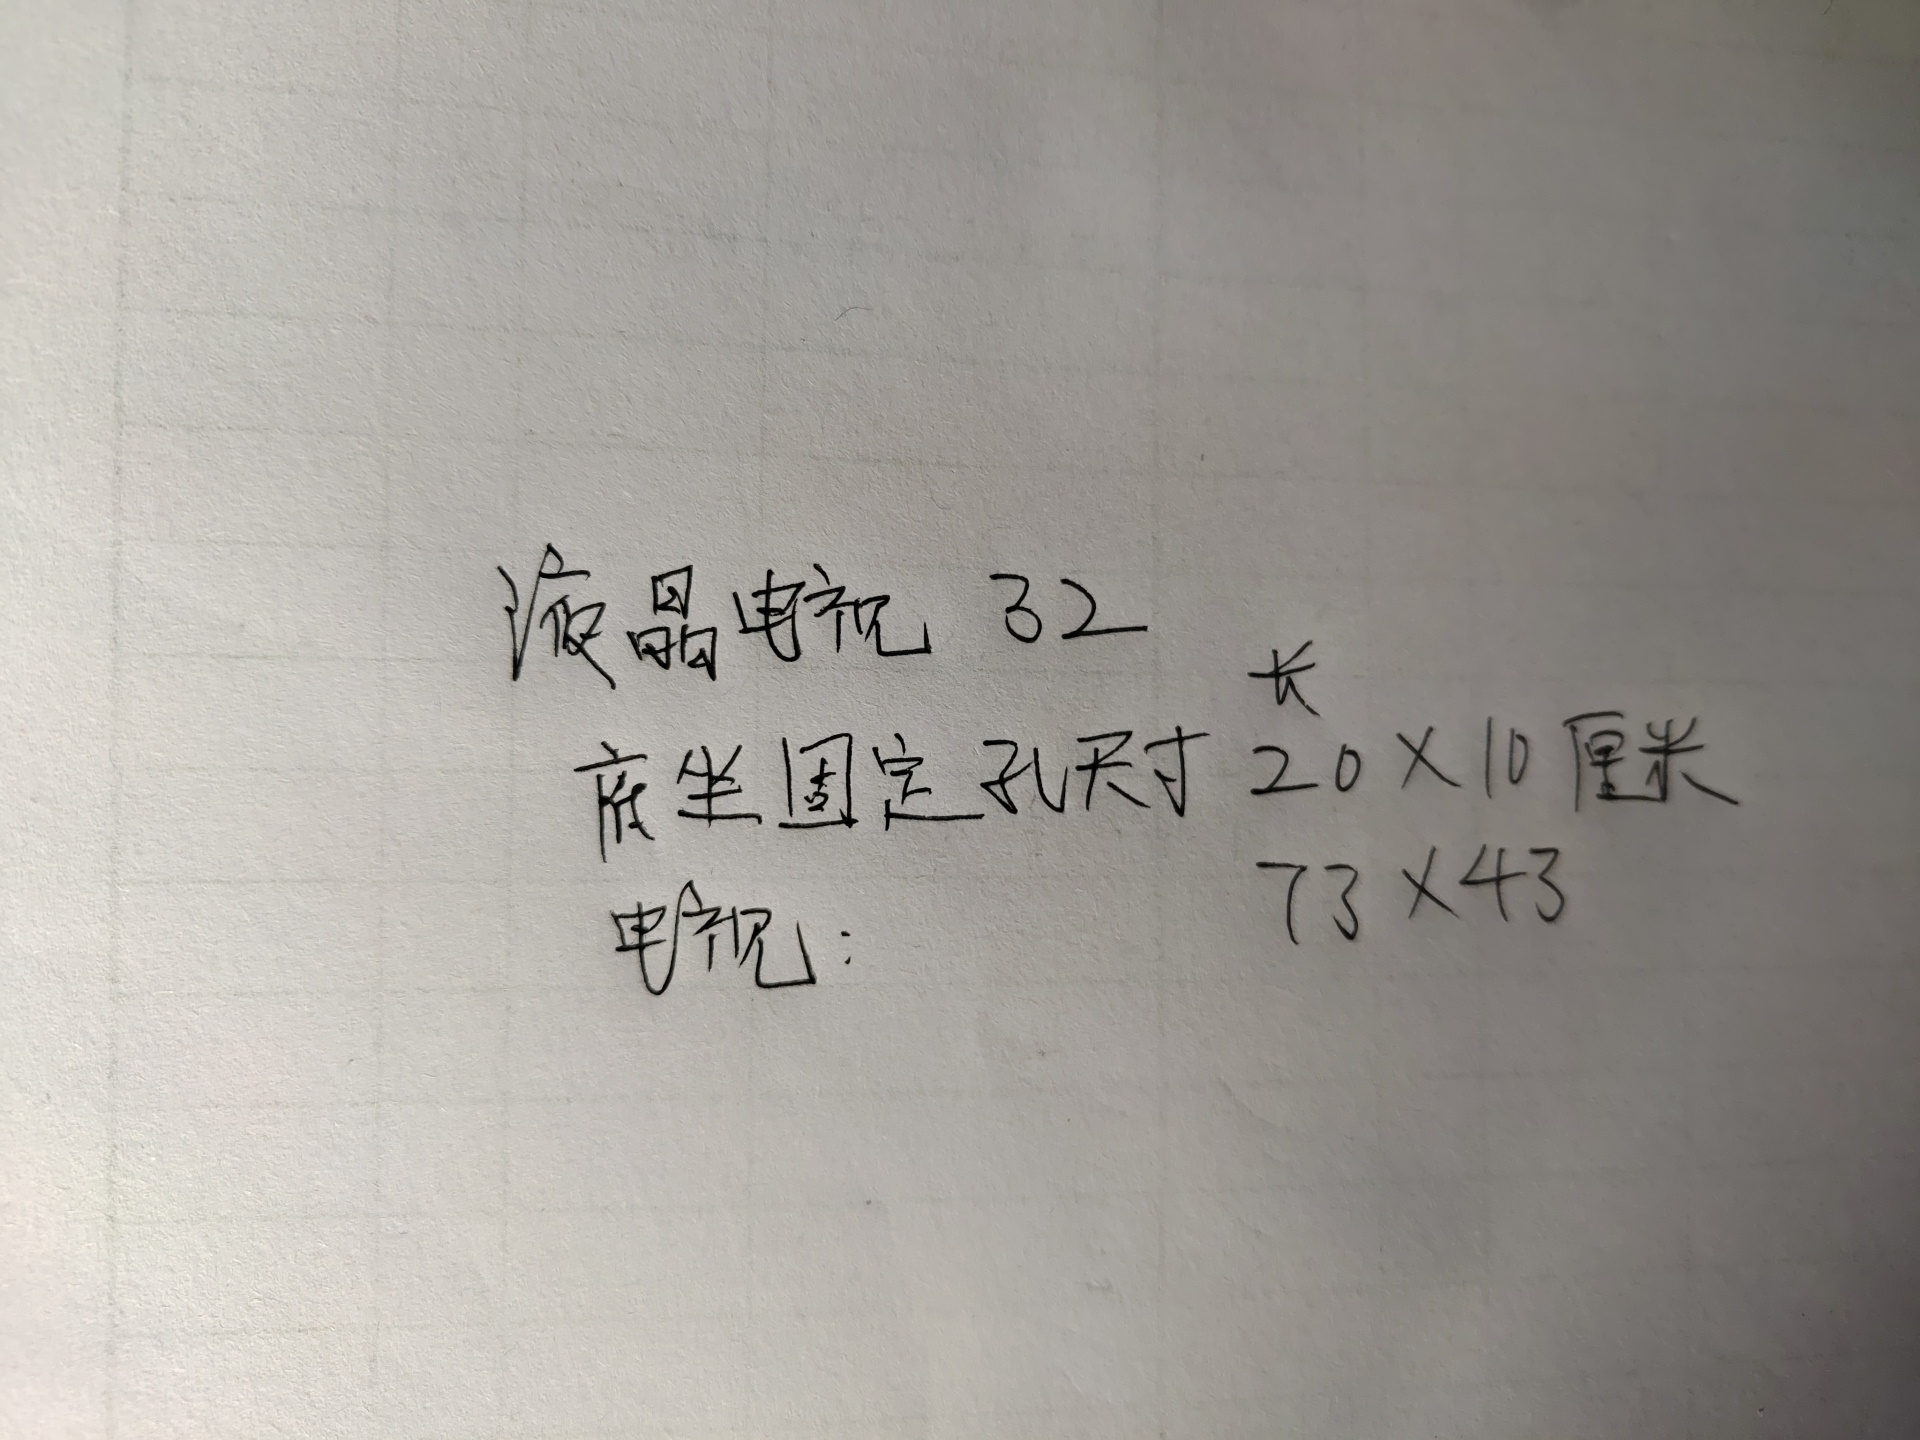 液晶电视 32
长
底坐固定孔尺寸 20×10厘米
电视: 73×43